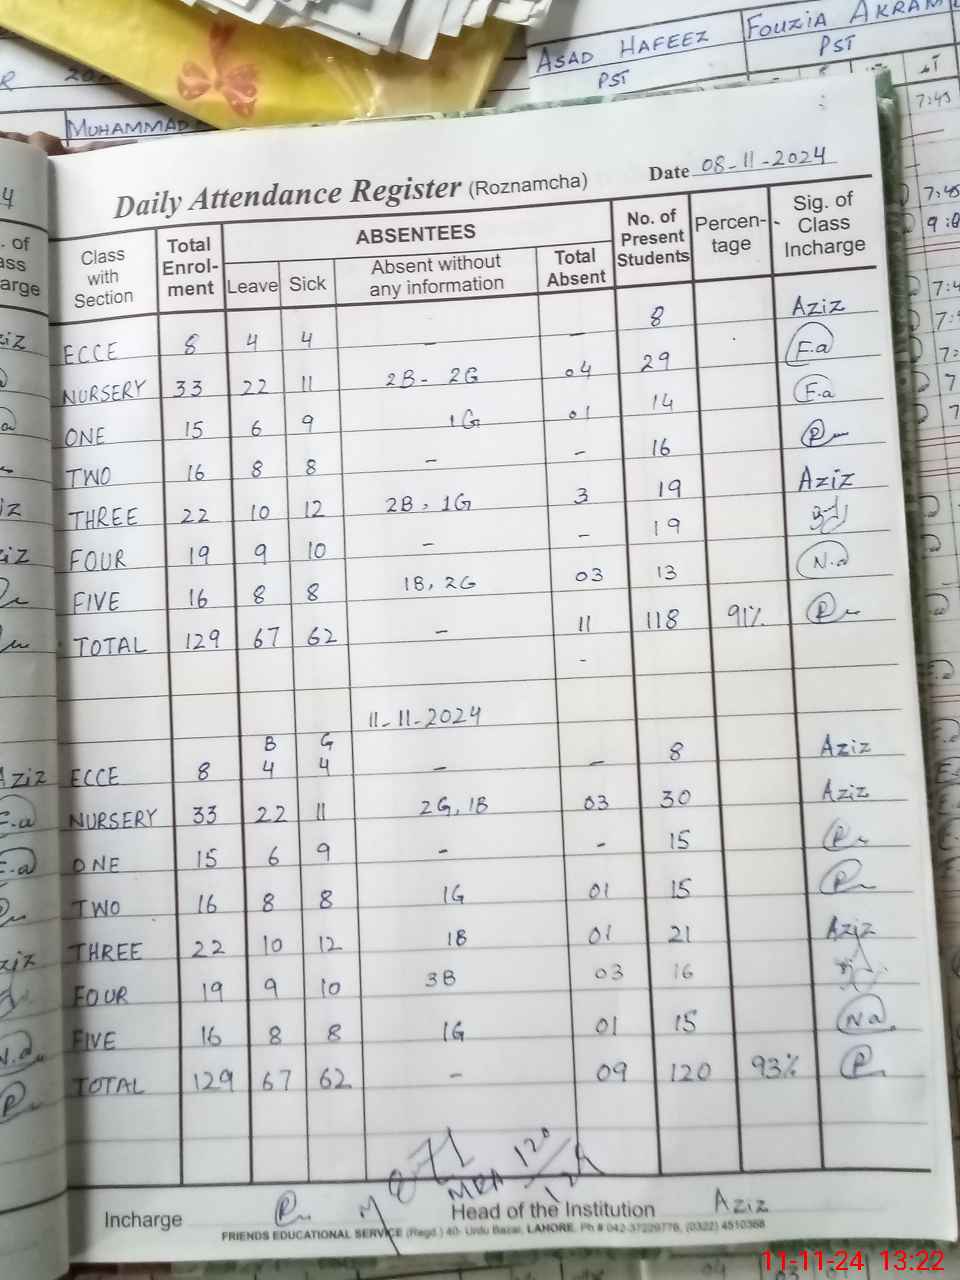 ASAD HAFEEZ FOUZIA AKRAM
PST PST
MUHAMMAD
7:45
Date 08-11-2024
Daily Attendance Register (Roznamcha)
Class with Section Total Enrol-ment ABSENTEES No. of Present Students Percen-tage Sig. of Class Incharge
Leave Sick Absent without any information Total Absent
ECCE 8 4 4 - - 8 Aziz
NURSERY 33 22 11 2B - 2G 04 29 F.a
ONE 15 6 9 1G 01 14 F.a
TWO 16 8 8 - - 16
THREE 22 10 12 2B, 1G 3 19 Aziz
FOUR 19 9 10 - - 19
FIVE 16 8 8 1B, 2G 03 13 N.a
TOTAL 129 67 62 - 11 118 91%
-
11-11-2024
B G
ECCE 8 4 4 - - 8 Aziz
NURSERY 33 22 11 2G, 1B 03 30 Aziz
ONE 15 6 9 - - 15
TWO 16 8 8 1G 01 15
THREE 22 10 12 1B 01 21 Aziz
FOUR 19 9 10 3B 03 16
FIVE 16 8 8 1G 01 15 N.a
TOTAL 129 67 62 - 09 120 93%
Incharge Head of the Institution Aziz
FRIENDS EDUCATIONAL SERVICE (Regd.) 40- Urdu Bazar, LAHORE. Ph # 042-37229776, (0322) 4510368
11-11-24 13:22